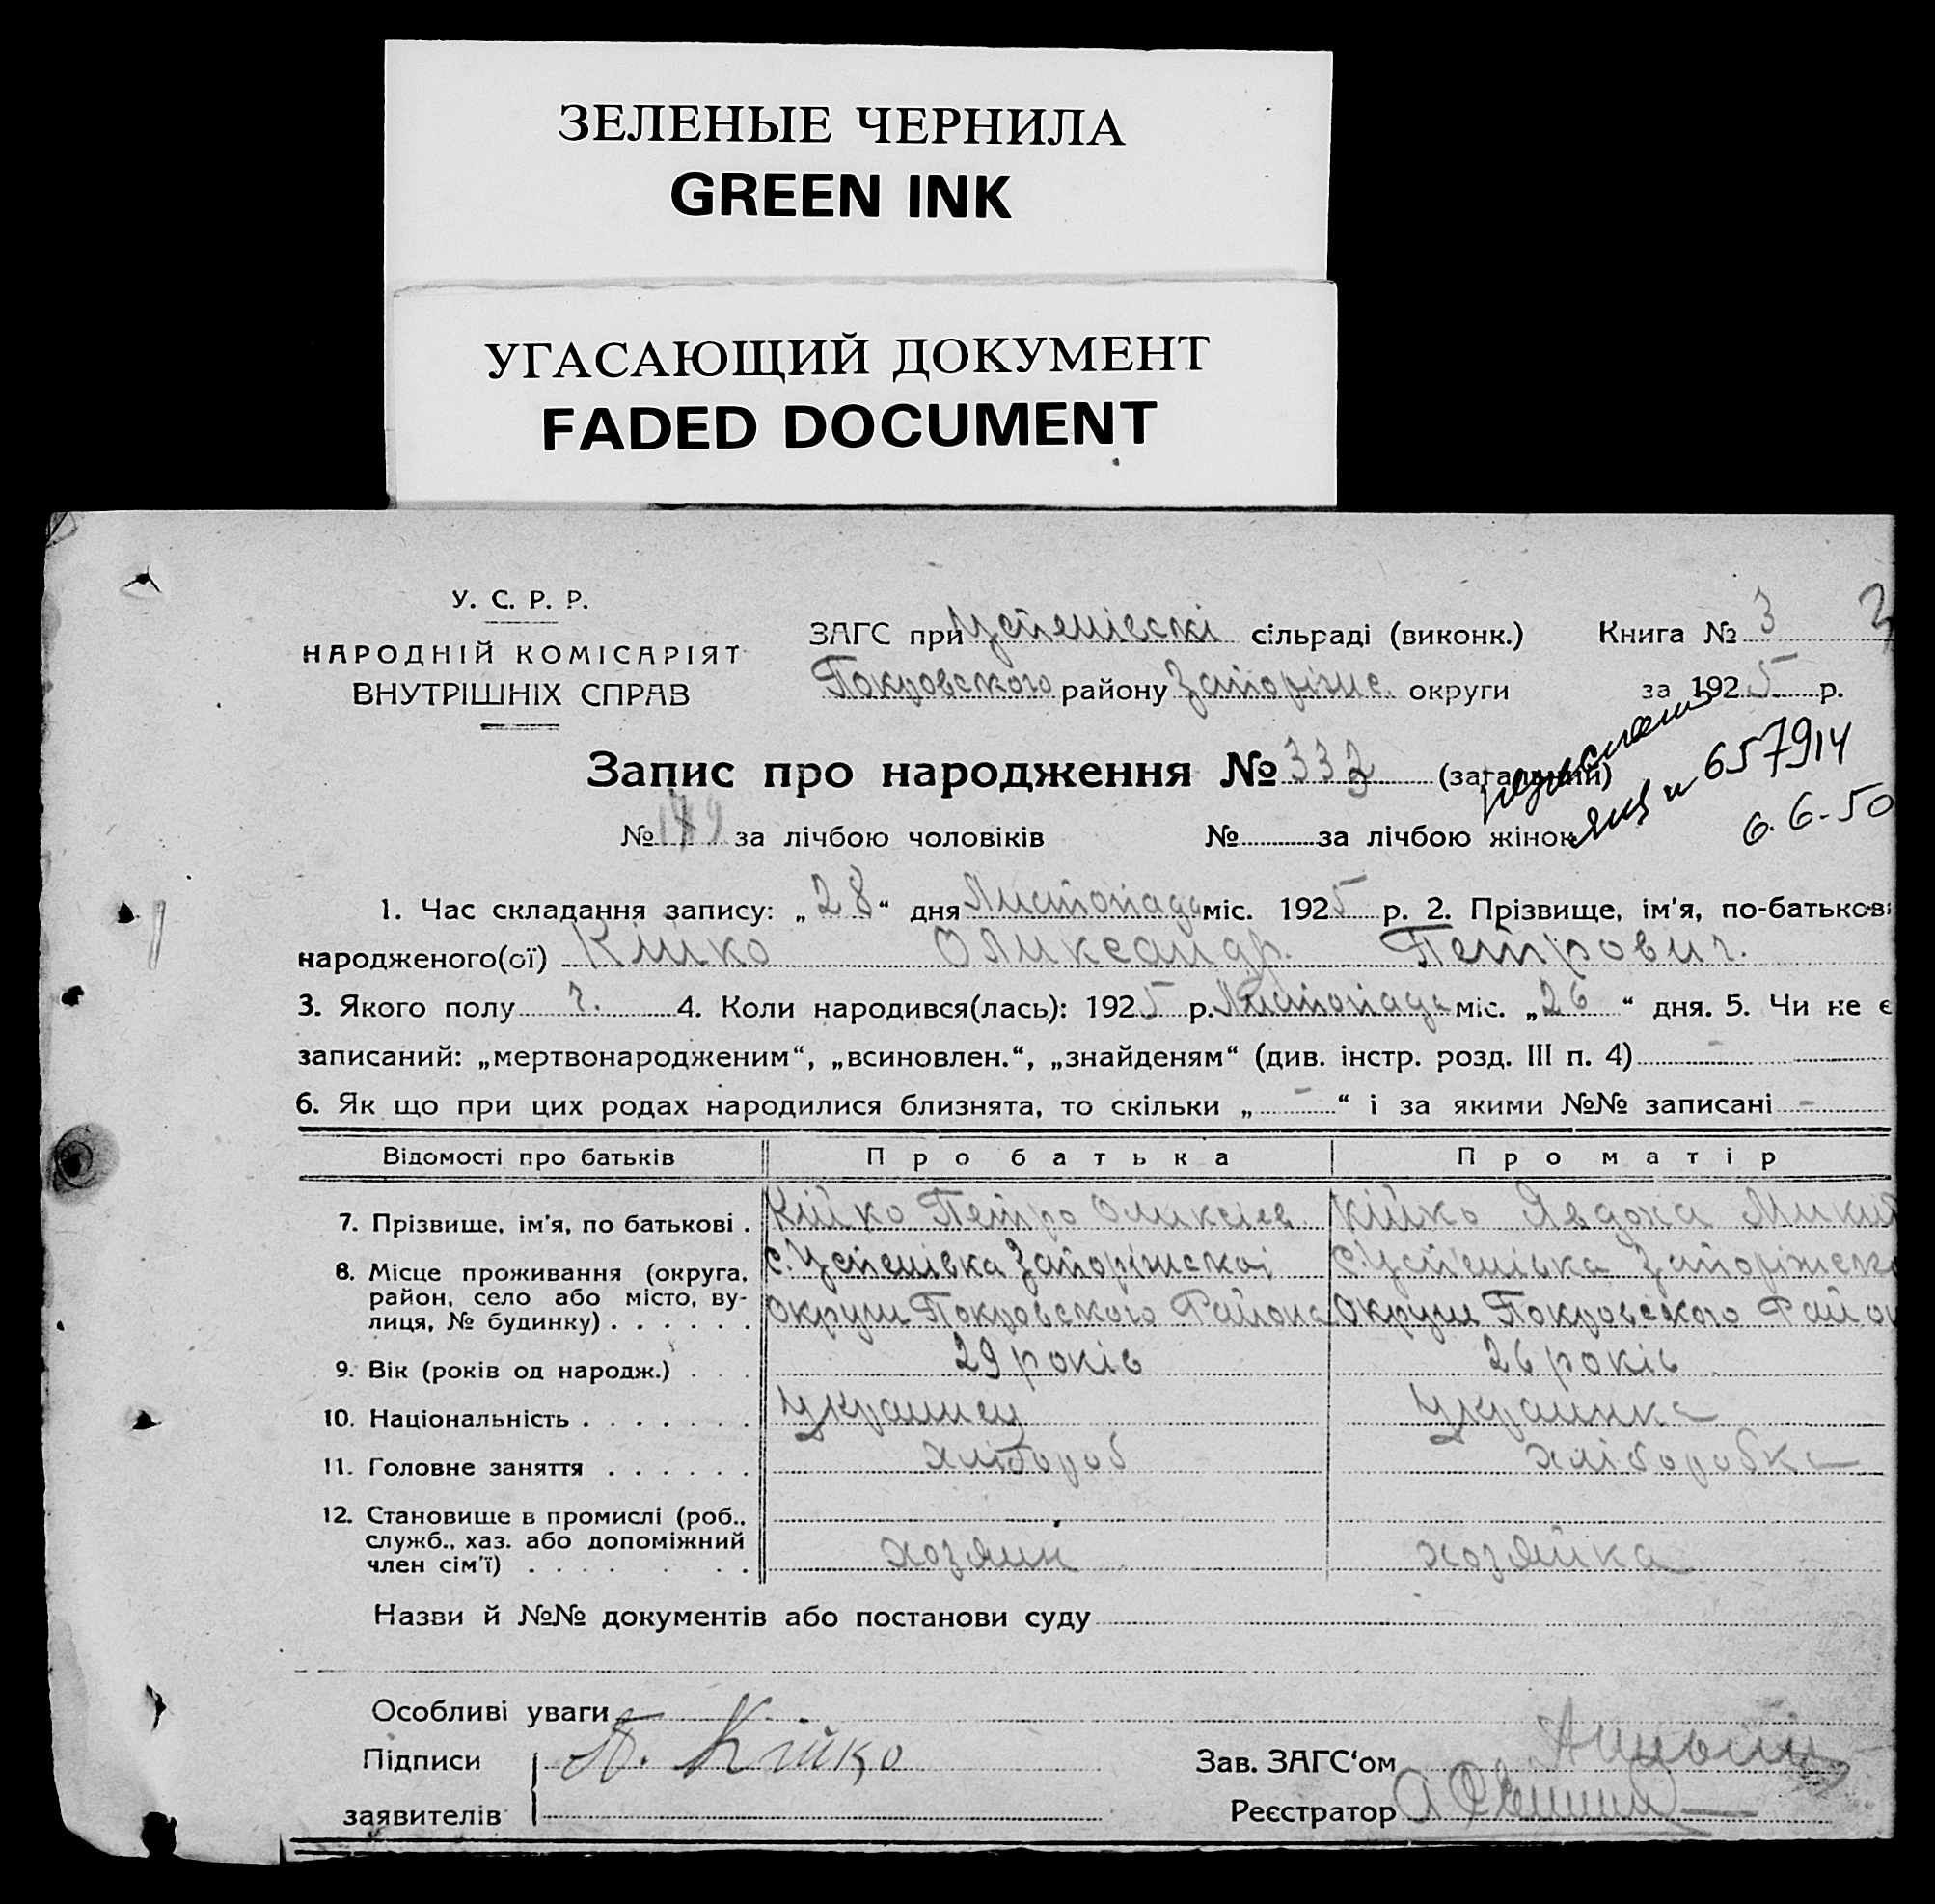 ЗЕЛЕНЫЕ ЧЕРНИЛА
GREEN INK
УГАСАЮЩИЙ ДОКУМЕНТ
FADED DOCUMENT
У. С. Р. Р.
НАРОДНІЙ КОМІСАРІЯТ
ВНУТРІШНІХ СПРАВ
ЗАГС при Успенівскі сільраді (виконк.) Книга № 3
Покровського району Запоріжс. округи за 1925 р.
Запис про народження № 332 (загальний)
№ за лічбою чоловіків № за лічбою жінок
657914
6.6-50
1. Час складання запису: „28“ дня Листопада міс. 1925 р. 2. Прізвище, ім’я, по-батькові
народженого(ої) Кійко Оликсандр. Петрович.
3. Якого полу ч. 4. Коли народився(лась): 1925 р. Листопада міс. „26“ дня. 5. Чи не є
записаний: „мертвонародженим“, „всиновлен.“, „знайденям“ (див. інстр. розд. III п. 4) -
6. Як що при цих родах народилися близнята, то скільки „-“ і за якими №№ записані -
Відомості про батьків Про батька Про матір
7. Прізвище, ім’я, по батькові . Кійко Петро Оликсіев Кійко Явдоха Микит
8. Місце проживання (округа, с. Успенівка Запоріжскоі с. Успенівка Запоріжско
район, село або місто, ву-
лиця, № будинку) . . . . . . Округи Покровского Района Округи Покровского Район
9. Вік (років од народж.) . . . 29 років 26 років
10. Національність . . . . . . . Украинец Украинка
11. Головне заняття . . . . . . хлібороб хліборобка
12. Становище в промислі (роб.,
служб., хаз. або допоміжний
член сім’ї) . . . . . . . хозяин хозяйка
Назви й №№ документів або постанови суду
Особливі уваги
Підписи П. Кійко Зав. ЗАГС‘ом
заявителів Реєстратор